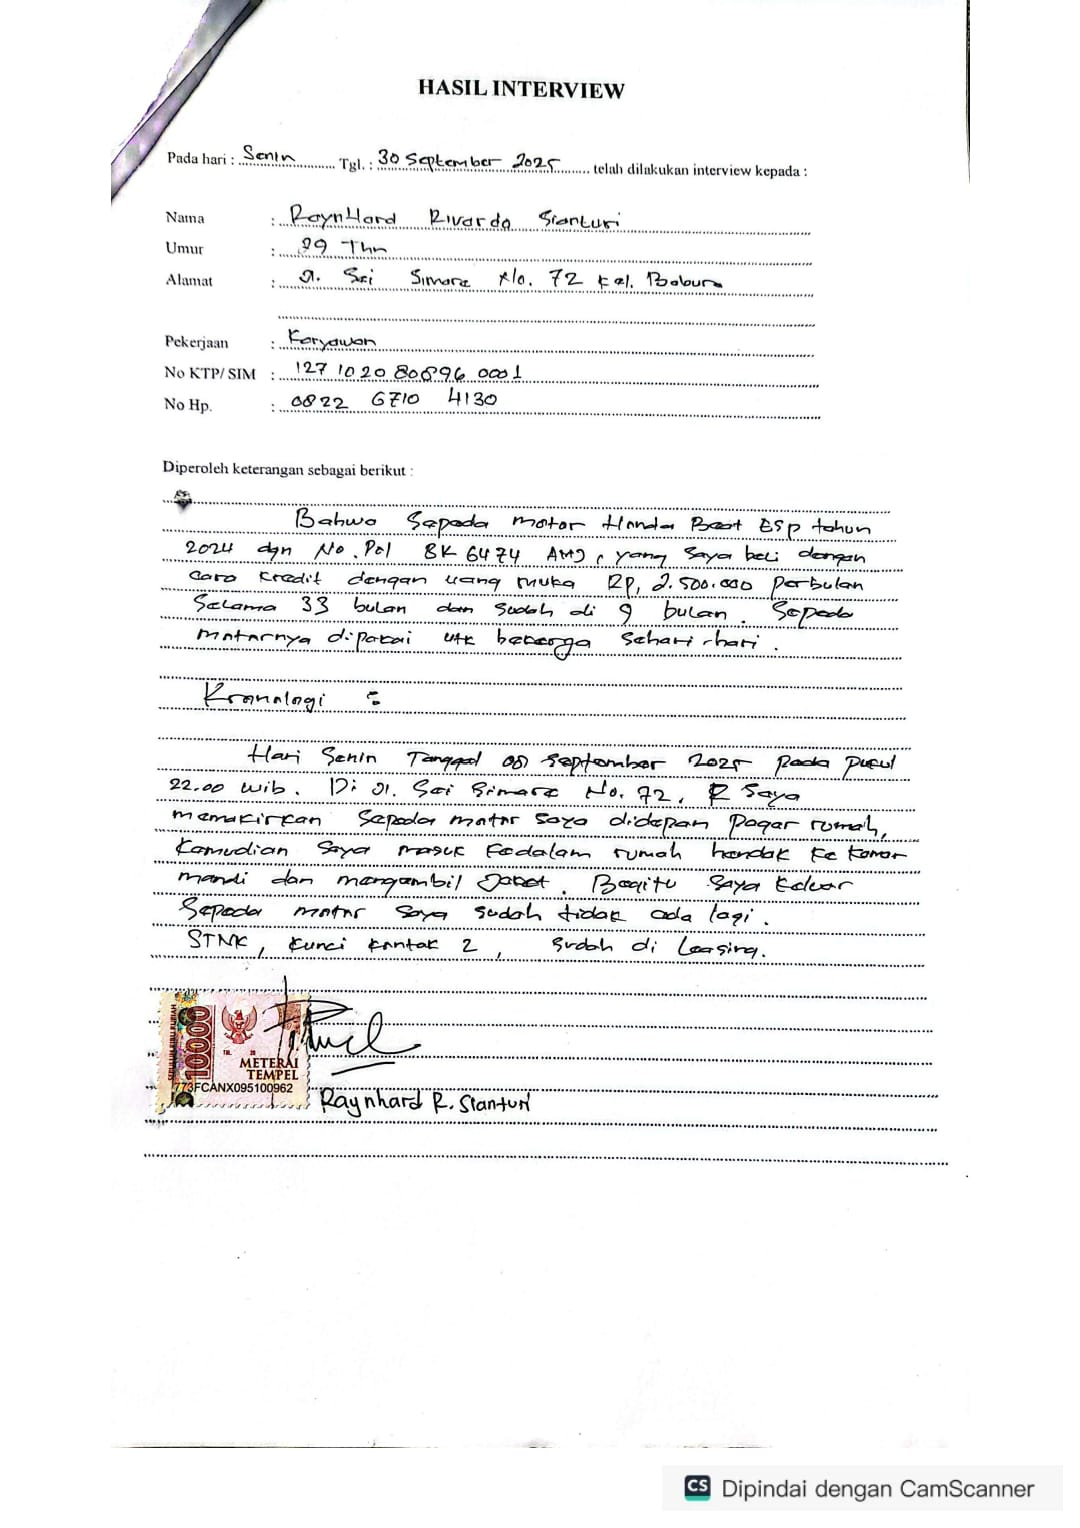 HASIL INTERVIEW
Pada hari : Senin Tgl. : 30 September 2025 telah dilakukan interview kepada :
Nama : RaynHard Rivardo Sianturi
Umur : 29 Thn
Alamat : Jl. Sei Simare No. 72 Kel. Babura
Pekerjaan : Karyawan
No KTP/ SIM : 127 10 20 80896 0001
No Hp. : 0822 6710 4130
Diperoleh keterangan sebagai berikut :
Bahwa Sepeda motor Honda Beat ESP tahun
2024 dgn No. Pol BK 6474 , yang saya beli dengan
cara kredit dengan uang muka RP, 2.500.000 perbulan
Selama 33 bulan dan sudah di 9 bulan. Sepeda
motornya dipakai utk bekerja sehari-hari.
Kronologi :
Hari Senin Tanggal 08 September 2025 pada pukul
22.00 wib. Di Jl. Sei Simare No. 72, Saya
memakirkan Sepeda motor saya didepan pagar rumah,
Kemudian saya masuk kedalam rumah hendak ke kamar
mandi dan mengambil Jaket. Begitu saya keluar
Sepeda motor saya sudah tidak ada lagi.
STNK, kunci kontak 2, sudah di Leasing.
SEPULUH RIBU RUPIAH
10000
TGL. 20
METERAI
TEMPEL
773FCANX095100962
Raynhard R. Sianturi
CS Dipindai dengan CamScanner